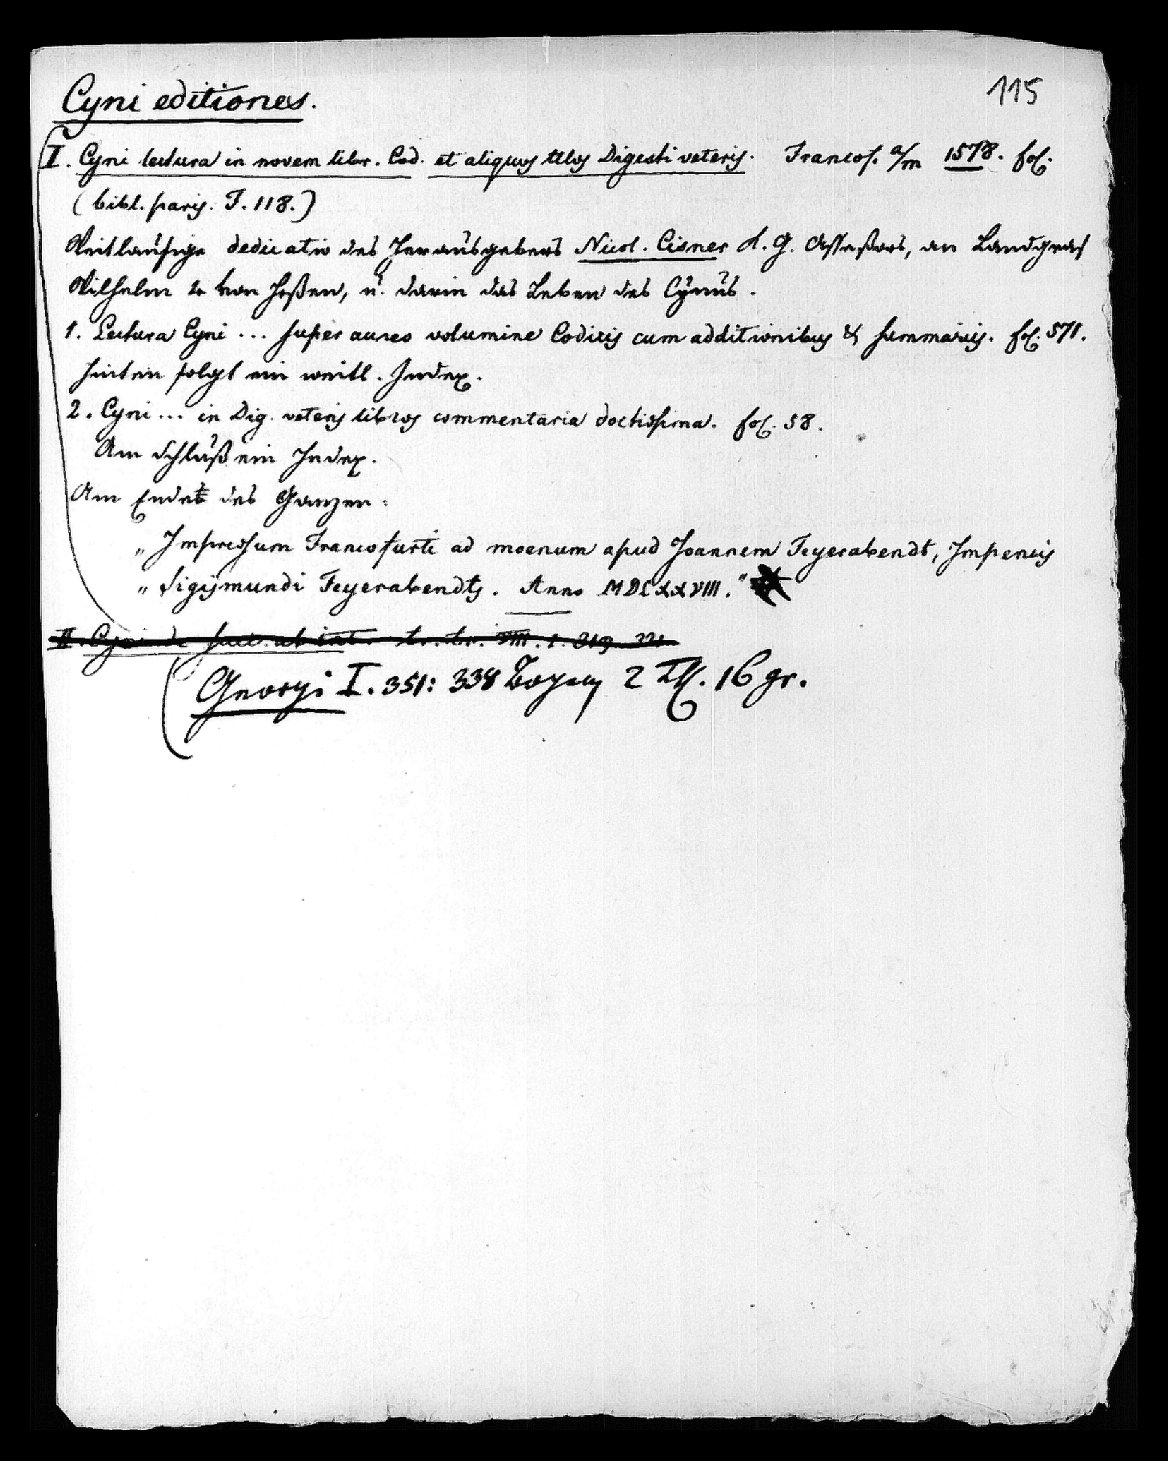 115
Cyni editiones.
I. Cyni lectura in novem libr. Cod. et aliquos ttlos Digesti veteris. Francof. a/m 1578. fol.
(bibl. paris. F. 118.)
Weitläufige dedicatio des Herausgebers Nicol. Cisner K. G. Assessors, an Landgraf
Wilhelm von Heßen, u. darin das Leben des Cynus.
1. Lectura Cyni ... super aureo volumine Codicis cum additionibus & summariis. fol. 571.
hinten folgt ein weitl. Index.
2. Cyni ... in Dig. veteris libros commentaria doctissima. fol. 58.
Am Schluß ein Index.
Am Ende des Ganzen:
„Impressum Francofurti ad moenum apud Joannem Feyerabendt, Impensis
„Sigismundi Feyerabendts. Anno MDLXXVIII."
II. Cyni de succ. ab int. tr. tr. VIII. 1. 319. 321.
Georgi I. 351: 338 Bogen 2 Tlr. 16 gr.